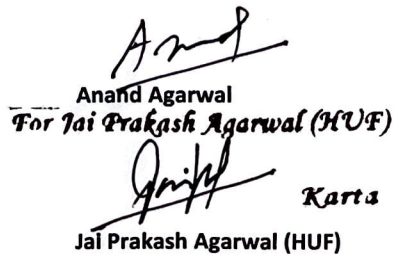 Anand Agarwal
For Jai Prakash Agarwal (HUF)
Karta
Jai Prakash Agarwal (HUF)